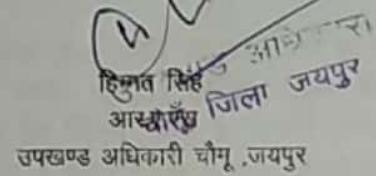 हिम्मत सिंह
आरएएस
जिला जयपुर
उपखण्ड अधिकारी चौमू ,जयपुर